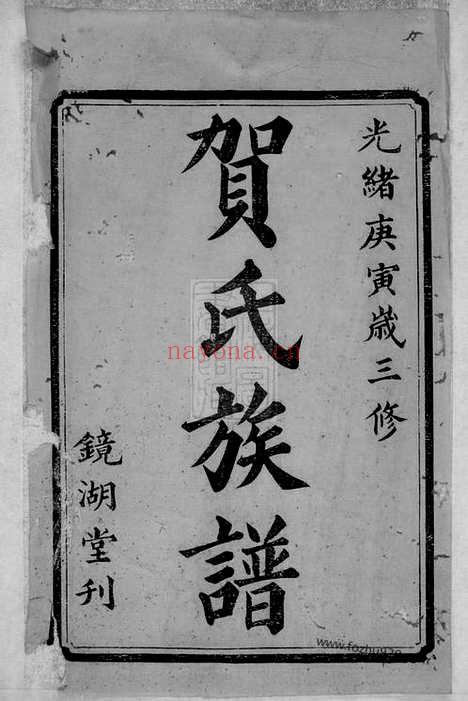 光緒庚寅歲三修
賀氏族譜
鏡湖堂刊
nayona.cn